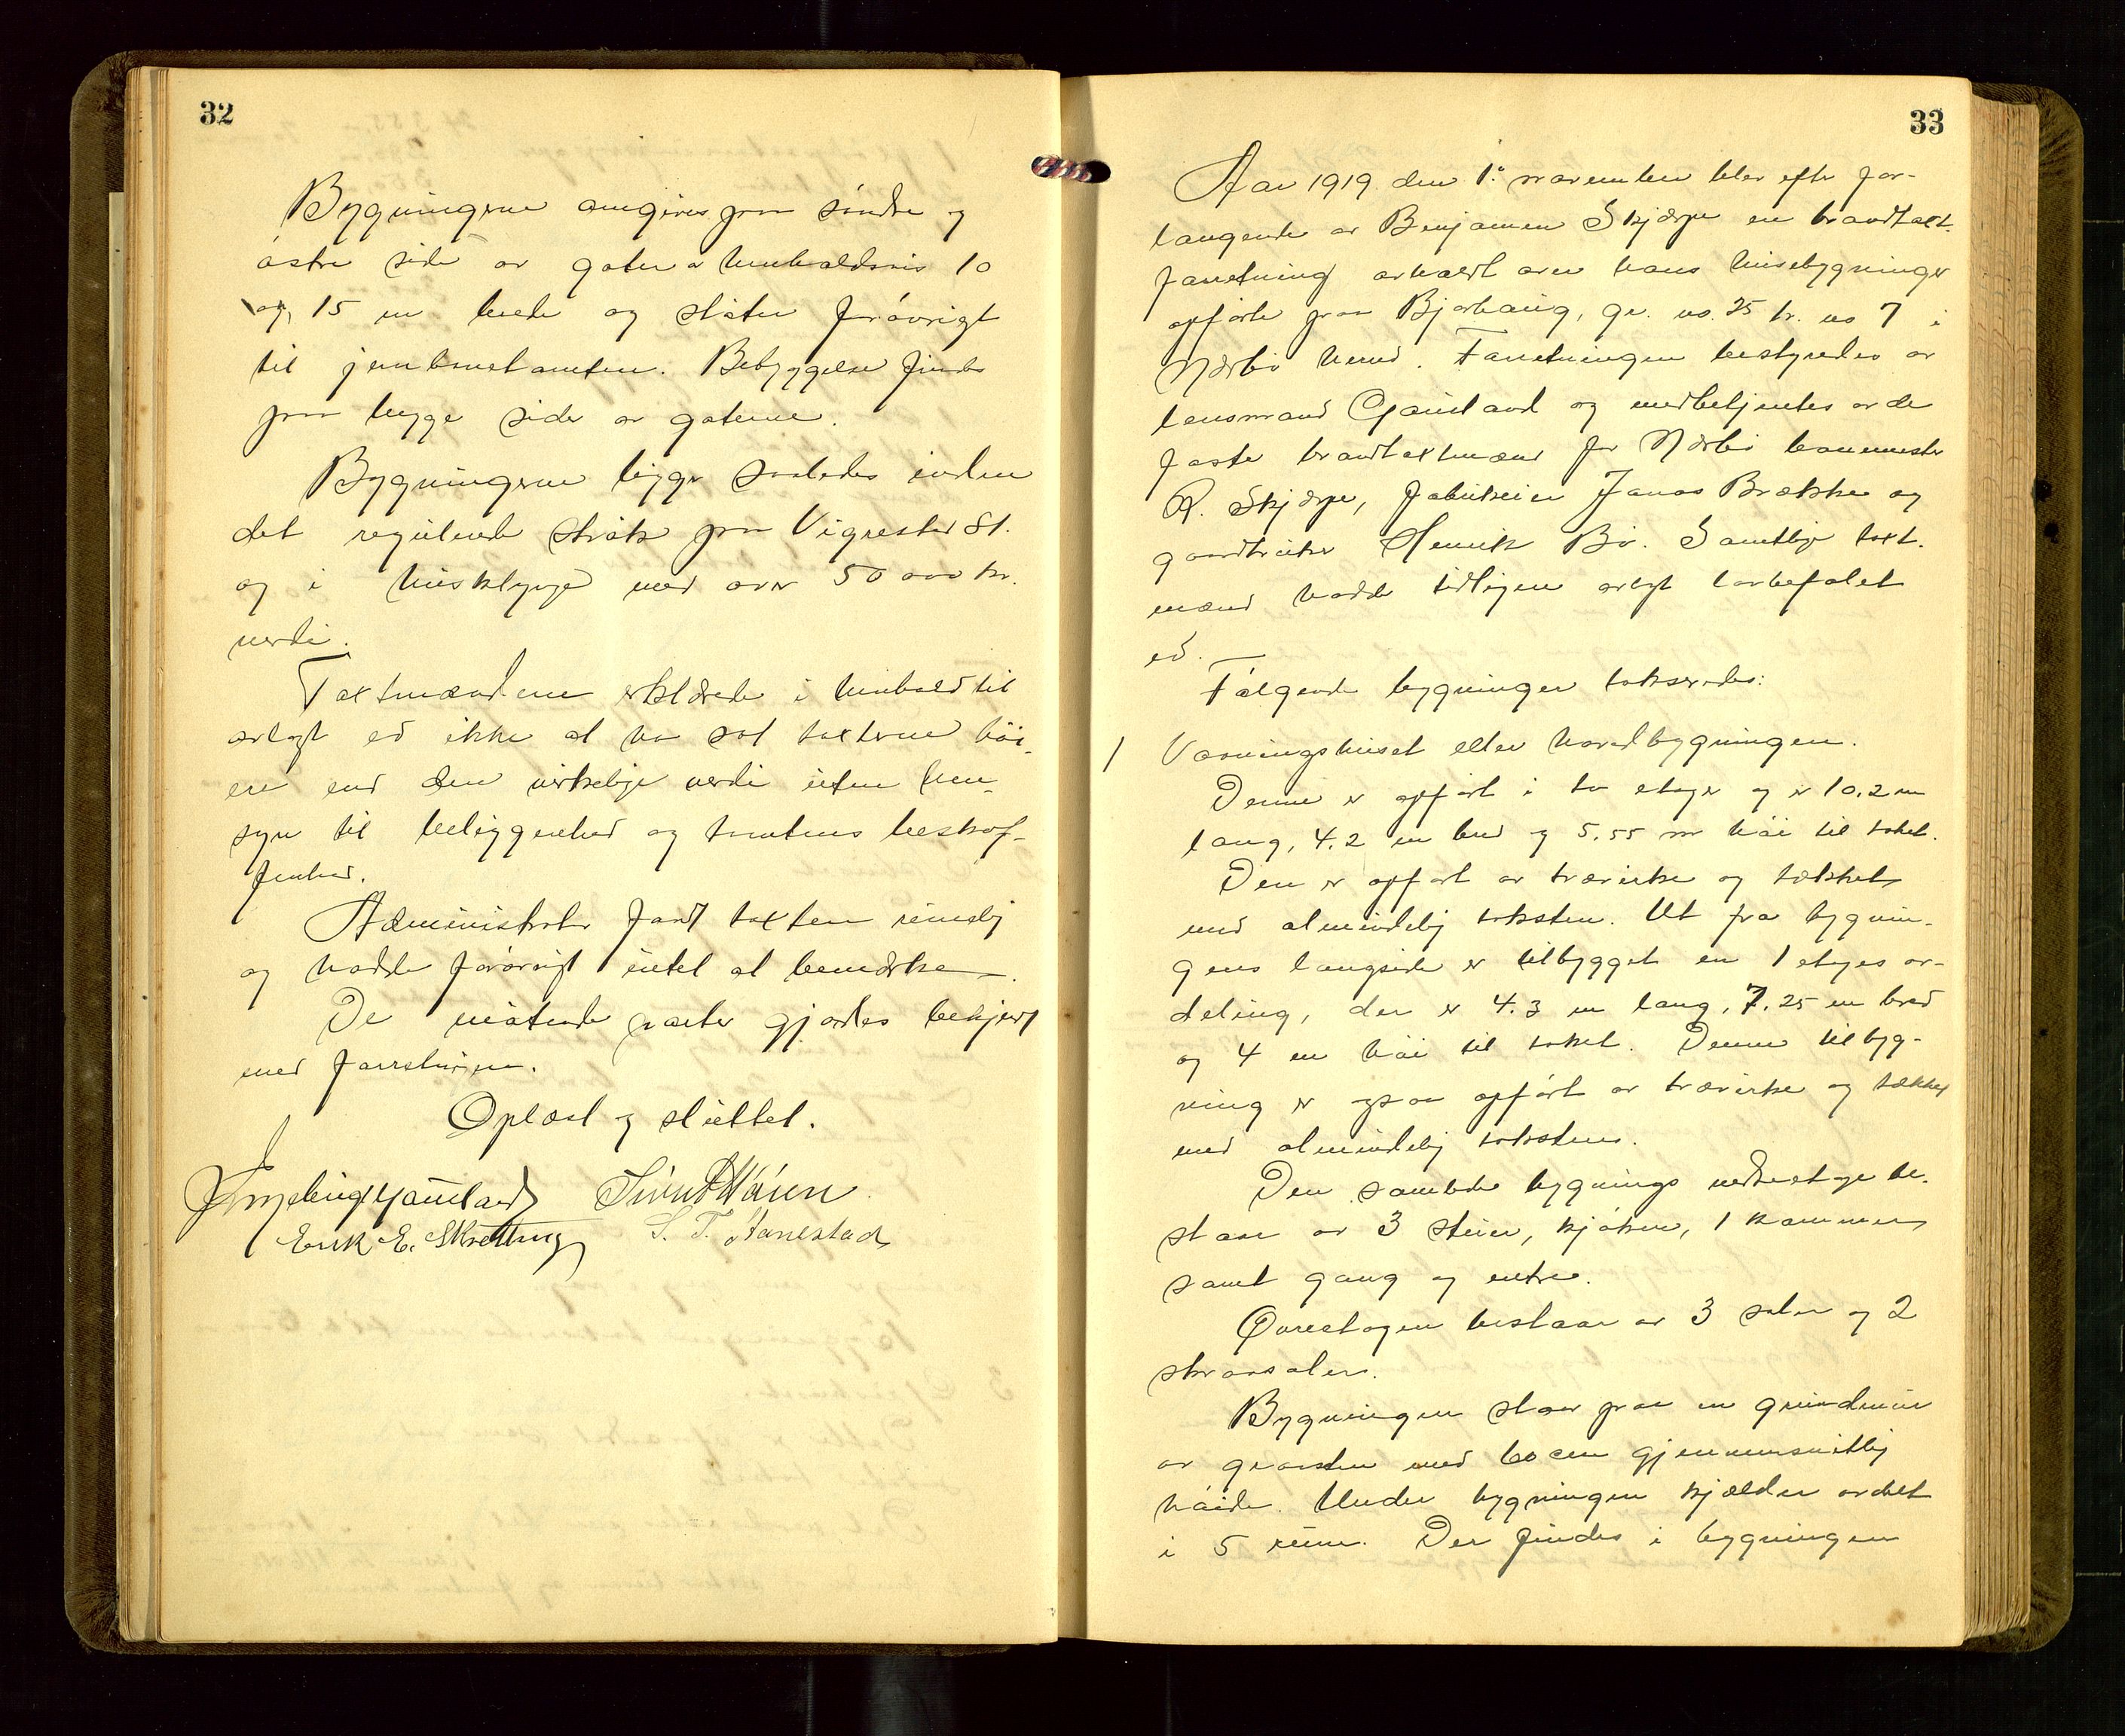 32
Bygningerne omgives paa søndre og
østre side av gater a henholdsvis 10
og 15 m brede og støter forøvrigt
til jernbanetomten. Bebyggelse findes
paa begge sider av gaterne.
Bygningerne ligger saaledes inden
det regulerede strøk paa Vigrestad St.
og i husklynge med over 50 000 kr.
verdi.
Taxtmændene erklærede i henhold til
avlagt ed ikke at ha sat taxterne høi-
ere end den virkelige verdi uten hen-
syn til beliggenhed og tomtens beskaf-
fenhed.
Administrator fandt taxten rimelig
og hadde forøvrigt intet at bemærke.
De møtende parter gjordes bekjendt
med forretningen.
Oplæst og sluttet.
Gausland
Erik E. Skretting S. T. Aanestad
33
Aar 1919 den 1º november blev efter for-
langende av Benjamin Skjærpe en brandtaxt-
forretning avholdt over hans husebygninger
opførte paa Bjorhaug, gr. no. 25 br. no 7 i
Nærbø herred. Forretningen bestyredes av
lensmand Gausland og medbetjentes av de
faste brandtaxtmænd for Nærbø banemester
R. Skjærpe, fabrikeier Jonas Brække og
gaardbruker Henrik Bø. Samtlige taxt-
mænd hadde tidligere avlagt lovbefalet
ed.
Følgende bygninger takseredes:
1 Vaaningshuset eller hovedbygningen.
Denne er opført i to etager og er 10.2 m
lang, 4.2 m bred og 5.55 m høi til taket.
Den er opført av træverke og tækket
med almindelig taksten. Ut fra bygnin-
gens langside er tilbygget en 1 etages av-
deling, der er 4.3 m lang, 7.25 m bred
og 4 m høi til taket. Denne tilbyg-
ning er ogsaa opført av træverke og tækket
med almindelig taksten.
Den samlede bygnings nedreetage be-
staar av 3 stuer, kjøken, 1 kammer
samt gang og entre.
Øvreetagen bestaar av 3 saler og 2
skraasaler.
Bygningen staar paa en grundmur
av graasten med 60 cm gjennemsnitlig
høide. Under bygningen kjælder avdelt
i 5 rum. Der findes i bygningen